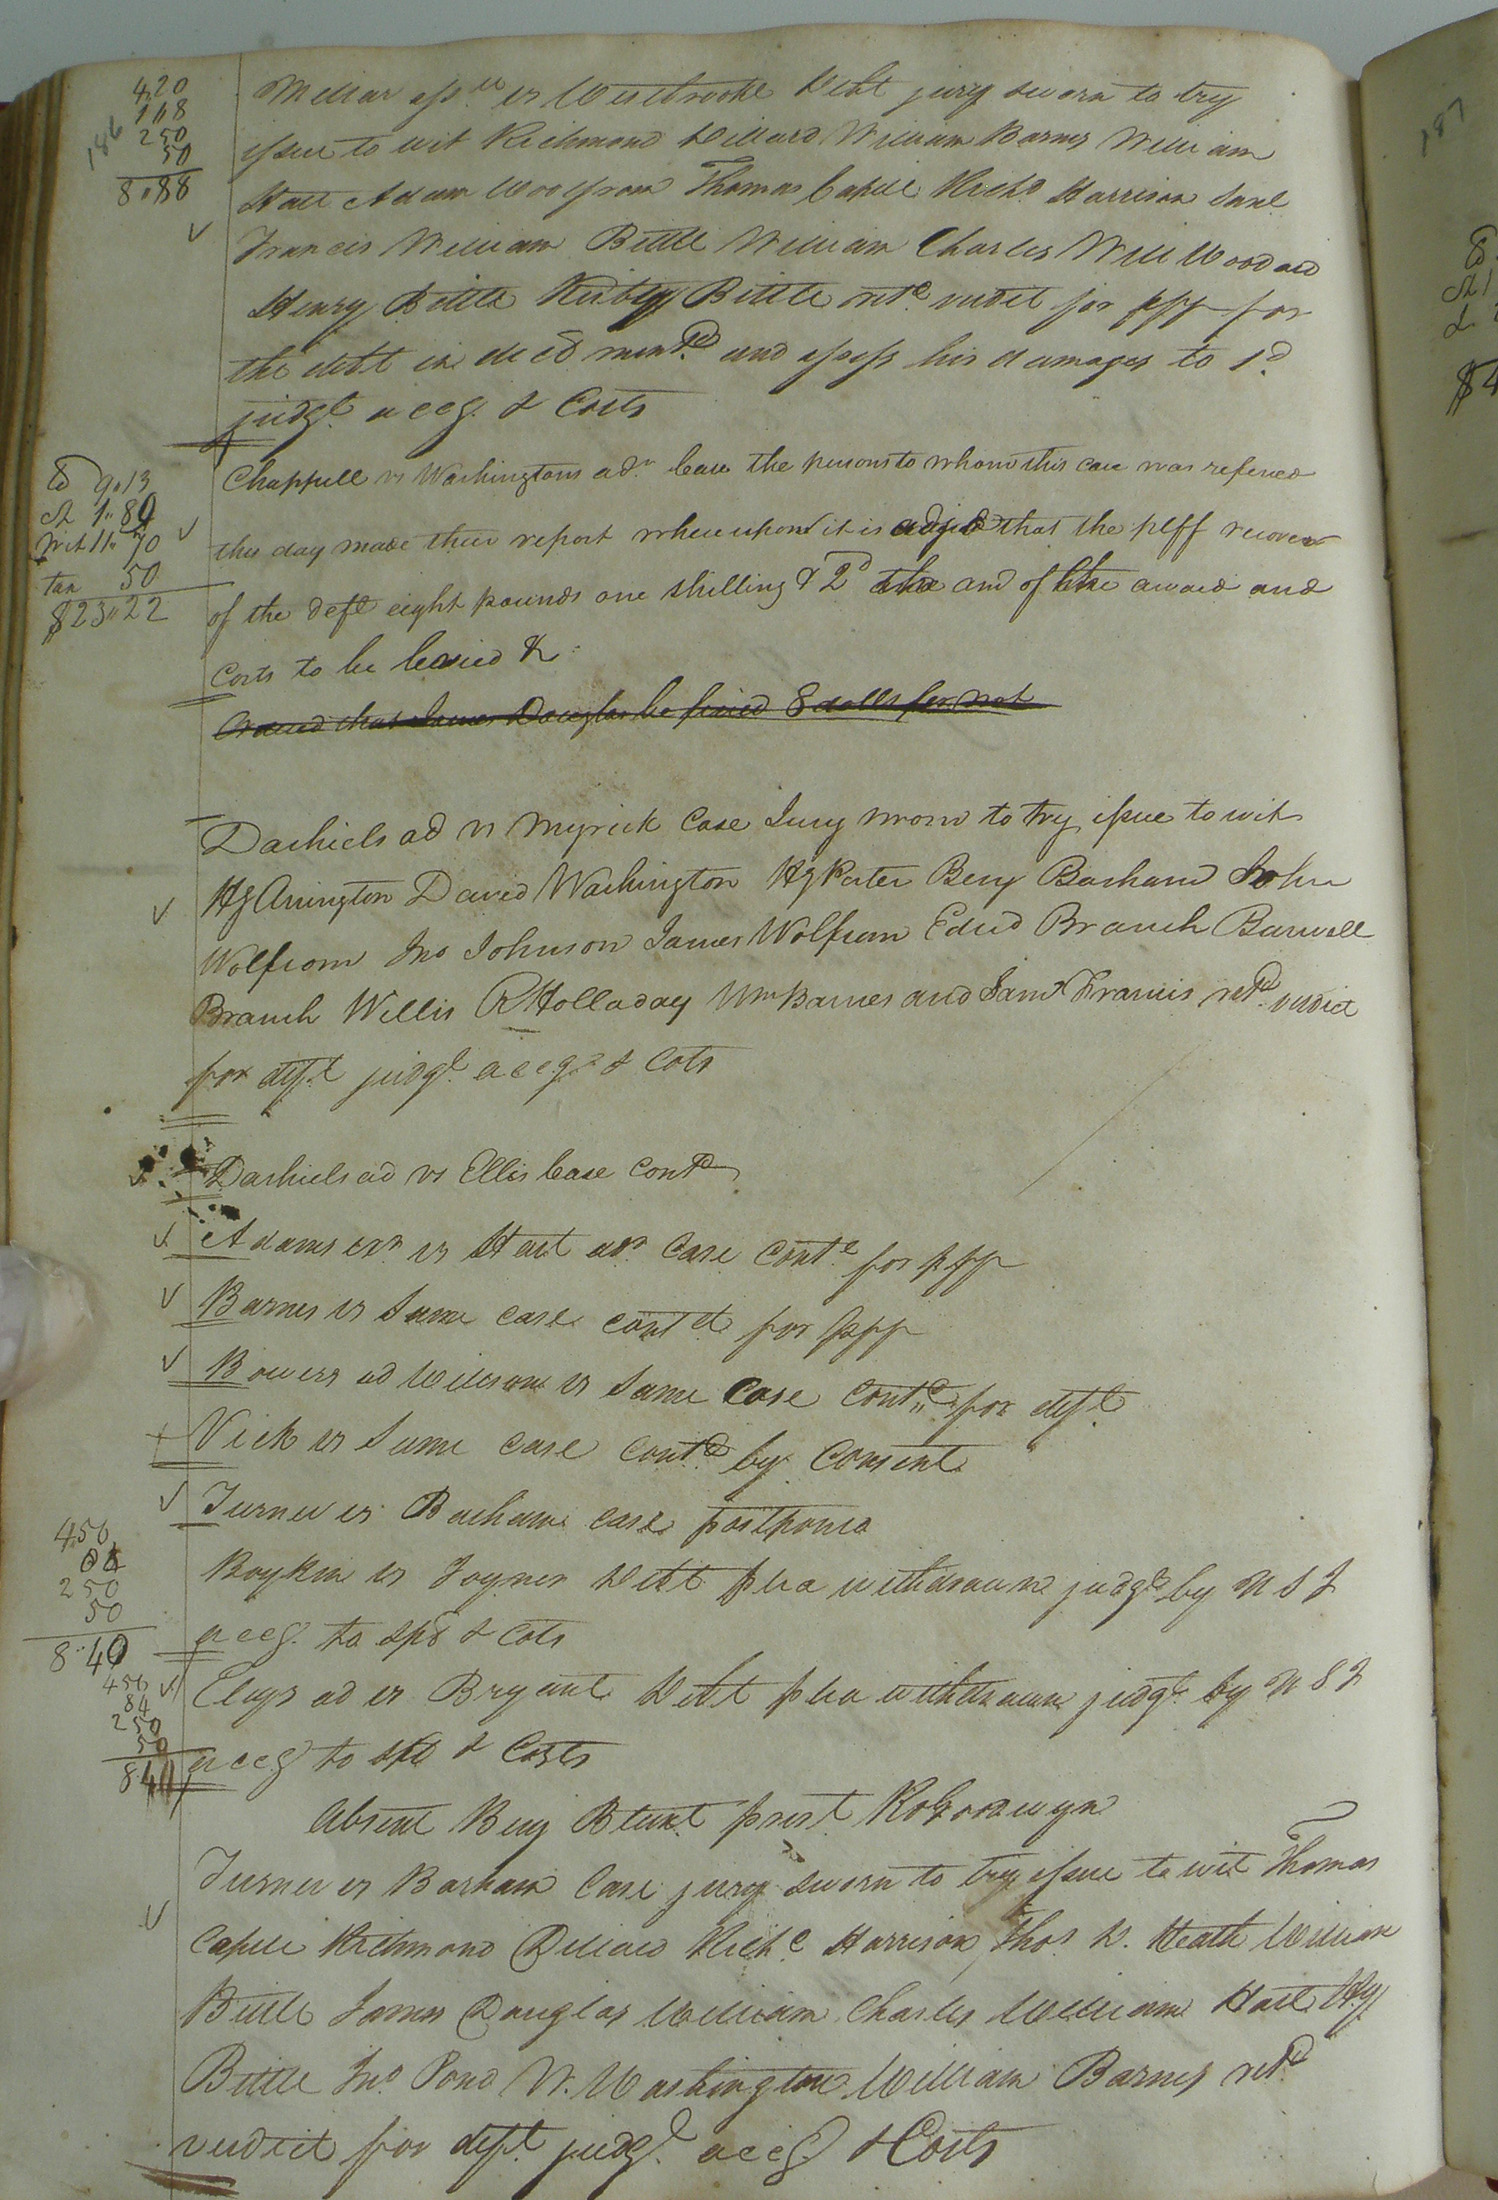 186
4,20
1,18
2 50
50
8"88
Millar ass.ee vs Westbrooke Debt jury sworn to try
issue to wit Richmond Dillard William Barnes William
Hall Adam Woolfrom Thomas Capell Rich.d Harrison Saml
Francis William Bittle William Charles Will Woodard
Henry Bittle Kirby Bittle ret.d verdict for plff for
the debt in decd ment.d and assess his damages to 1.d
judgt accg. & Costs
9"13
1"80
Wit 11" 70
tax 50
$23"22
Chappell vs Washingtons adr Case the persons to whom this case was refered
this day made their report whereupon it is adjd that the plff recover
of the deft eight pounds one shilling & 2d the amt of the award and
Costs to be levied &c
Ordered that James Douglas be fined 8 dolls for not
Dashiels ad vs Myrick Case Jury sworn to try issue to wit
Hy Arrington David Washington Hy Porter Benj Barham John
Wolfrom Jno Johnson James Wolfrom Edwd Branch Burwell
Branch Willis R Holladay Wm Barnes and Saml Francis retd verdict
for deft judgt accg & Cots
Dashiels ad vs Ellis Case Contd
Adams exr vs Hart adr Case Contd for plff
Barnes vs Same case contd for plff
Bowers ad Wilson vs Same Case Contd for deft
Vick vs Same case contd by Consent
Turner vs Barham case postponed
4.50
84
2 50
50
8"40
Boykin vs Joyner Debt plea withdrawn judgt by N S I
accg. to spe & Cots
450
84
250
50
840
Clays ad vs Bryant Debt plea withdrawn judgt by N S I
accg to spe & Costs
Absent Benj Blunt prest Ro Goodwyn
Turner vs Barham Case jury sworn to try issue to wit Thomas
Capell Richmond Dillard Richd Harrison Thos W. Heath William
Bittle James Douglas William Charles William Hall Hy
Bittle Jno Pond W. Washington William Barnes retd
verdict for deft judgt accg & Costs
187
$4